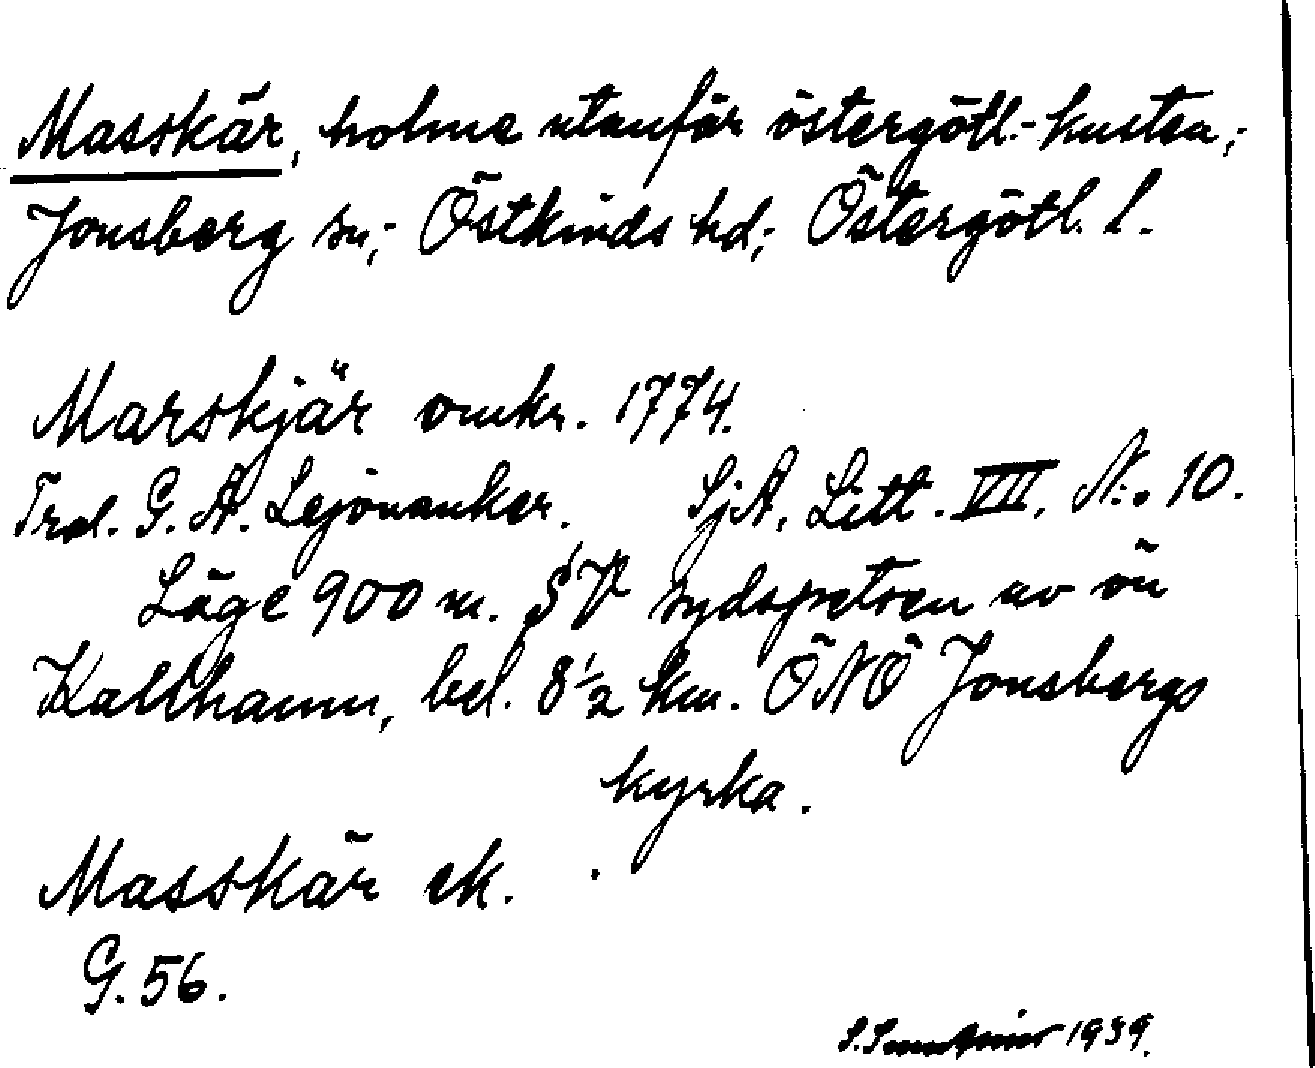 Masskär, holme utanför östergötl.-kusten,-
Jonsberg sn,- Östkinds hd,- Östergötl. l.
Marskjär omkr. 1774.
G. A. Lejonanker. SjA, Litt. VIII, N:o 10.
Läge 900 m. SV sydspetsen av ön
Kallhamn, bel. 8½ km. ÖNÖ Jonsbergs
kyrka.
Masskär ek.
G. 56.
1939.